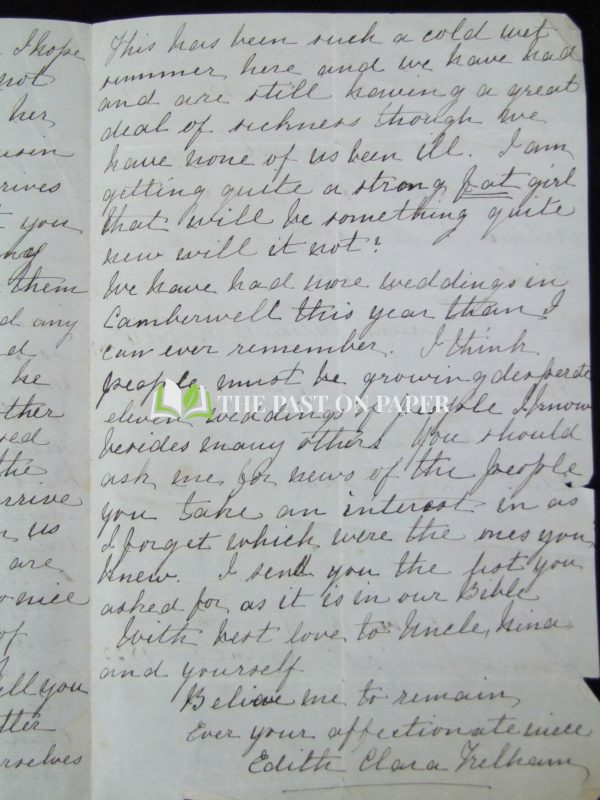 I hope
not
her
rives
you
them
d any
he
ther
the
rrive
us
are
nice
of
ell you
tter
rselves
This has been such a cold wet
summer here and we have had
and are still having a great
deal of sickness though we
have none of us been ill. I am
getting quite a strong fat girl
that will be something quite
new will it not?
We have had more weddings in
Camberwell this year than I
can ever remember. I think
people must be growing desperate
eleven weddings of people I know
besides many others You should
ask me for news of the people
you take an interest in as
I forget which were the ones you
knew. I send you the list you
asked for as it is in our Bible
With best love to Uncle, Nina
and yourself
Believe me to remain
Ever your affectionate niece
Edith Clara
THE PAST ON PAPER